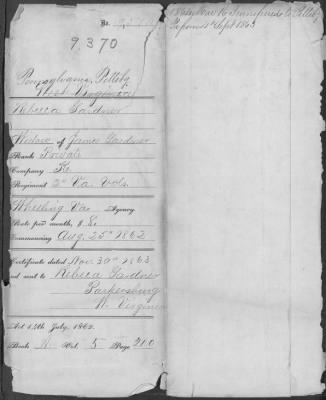 No.
9,370
Pennsylvania, Pittsbg
West Virginia
Rebecca Gardner
Widow of James Gardner
Rank Private
Company K
Regiment 2d Va. Vols.
Wheeling Va. Agency.
Rate per month, $ 8
Commencing Aug. 25th 1862
Certificate dated Nov. 30th 1863
and sent to Rebecca Gardner
Parkersburg
W. Virginia
Act 14th July, 1862.
Book A Vol. 5 Page 210
Transferred to Pittsbg
from 4th Sept 1865